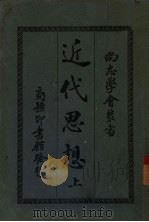 尚志學會叢書
近代思想 上
商務印書館發行